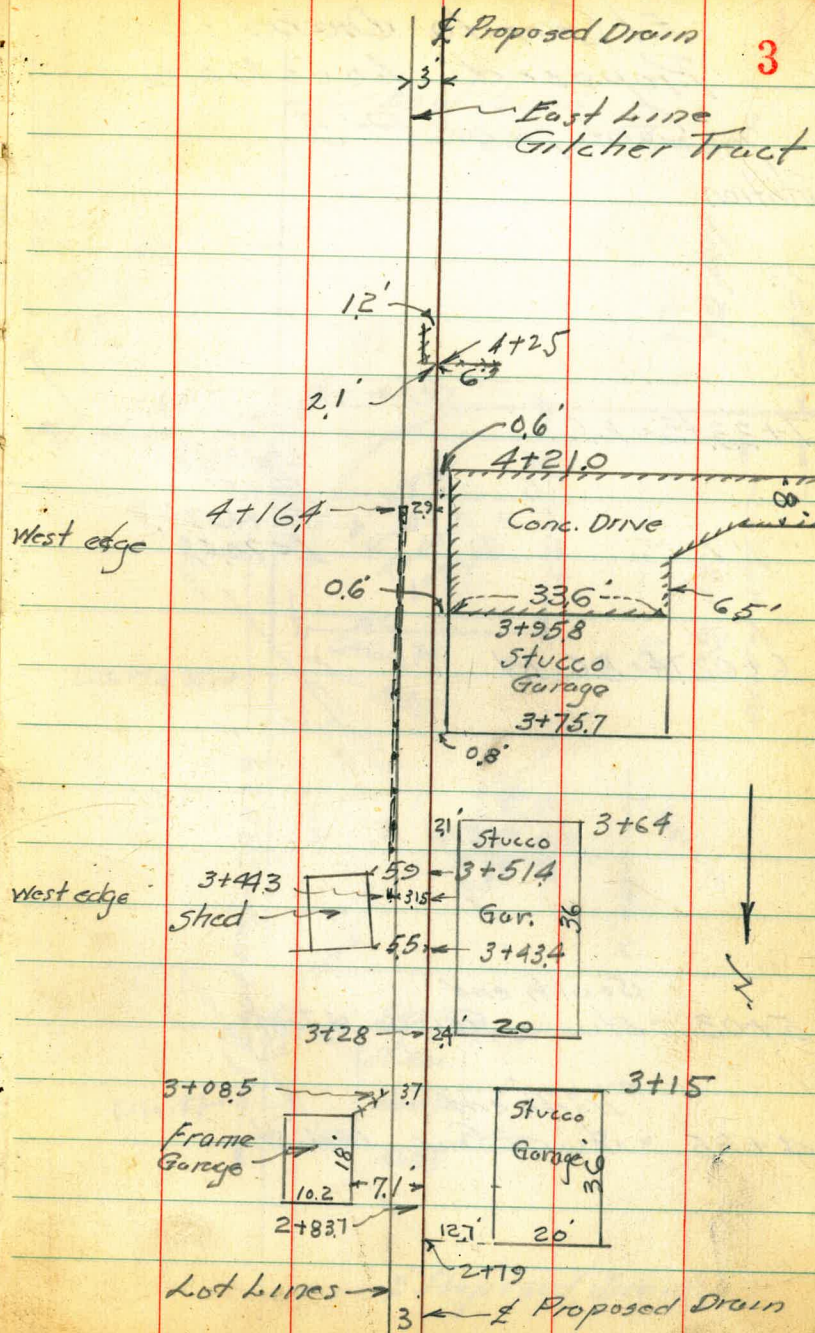 ℄ Proposed Drain
3
3'
East Line
Gilcher Tract
1.2'
4+25
6.3
2.1'
0.6'
4+21.0
8'
4+16.4
2.9
Conc. Drive
West edge
0.6'
33.6'
6.5'
3+95.8
Stucco
Garage
3+75.7
0.8'
2.1'
Stucco
3+64
5.9
3+51.4
3+44.3
3.15
West edge
Shed
Gar.
36
5.5
3+43.4
N
3+28
2.4'
20
3+08.5
3.7
3+15
Stucco
Frame
Garage
18'
Garage
36
10.2
7.1'
2+83.7
12.7'
20'
2+79
Lot Lines
3'
℄ Proposed Drain